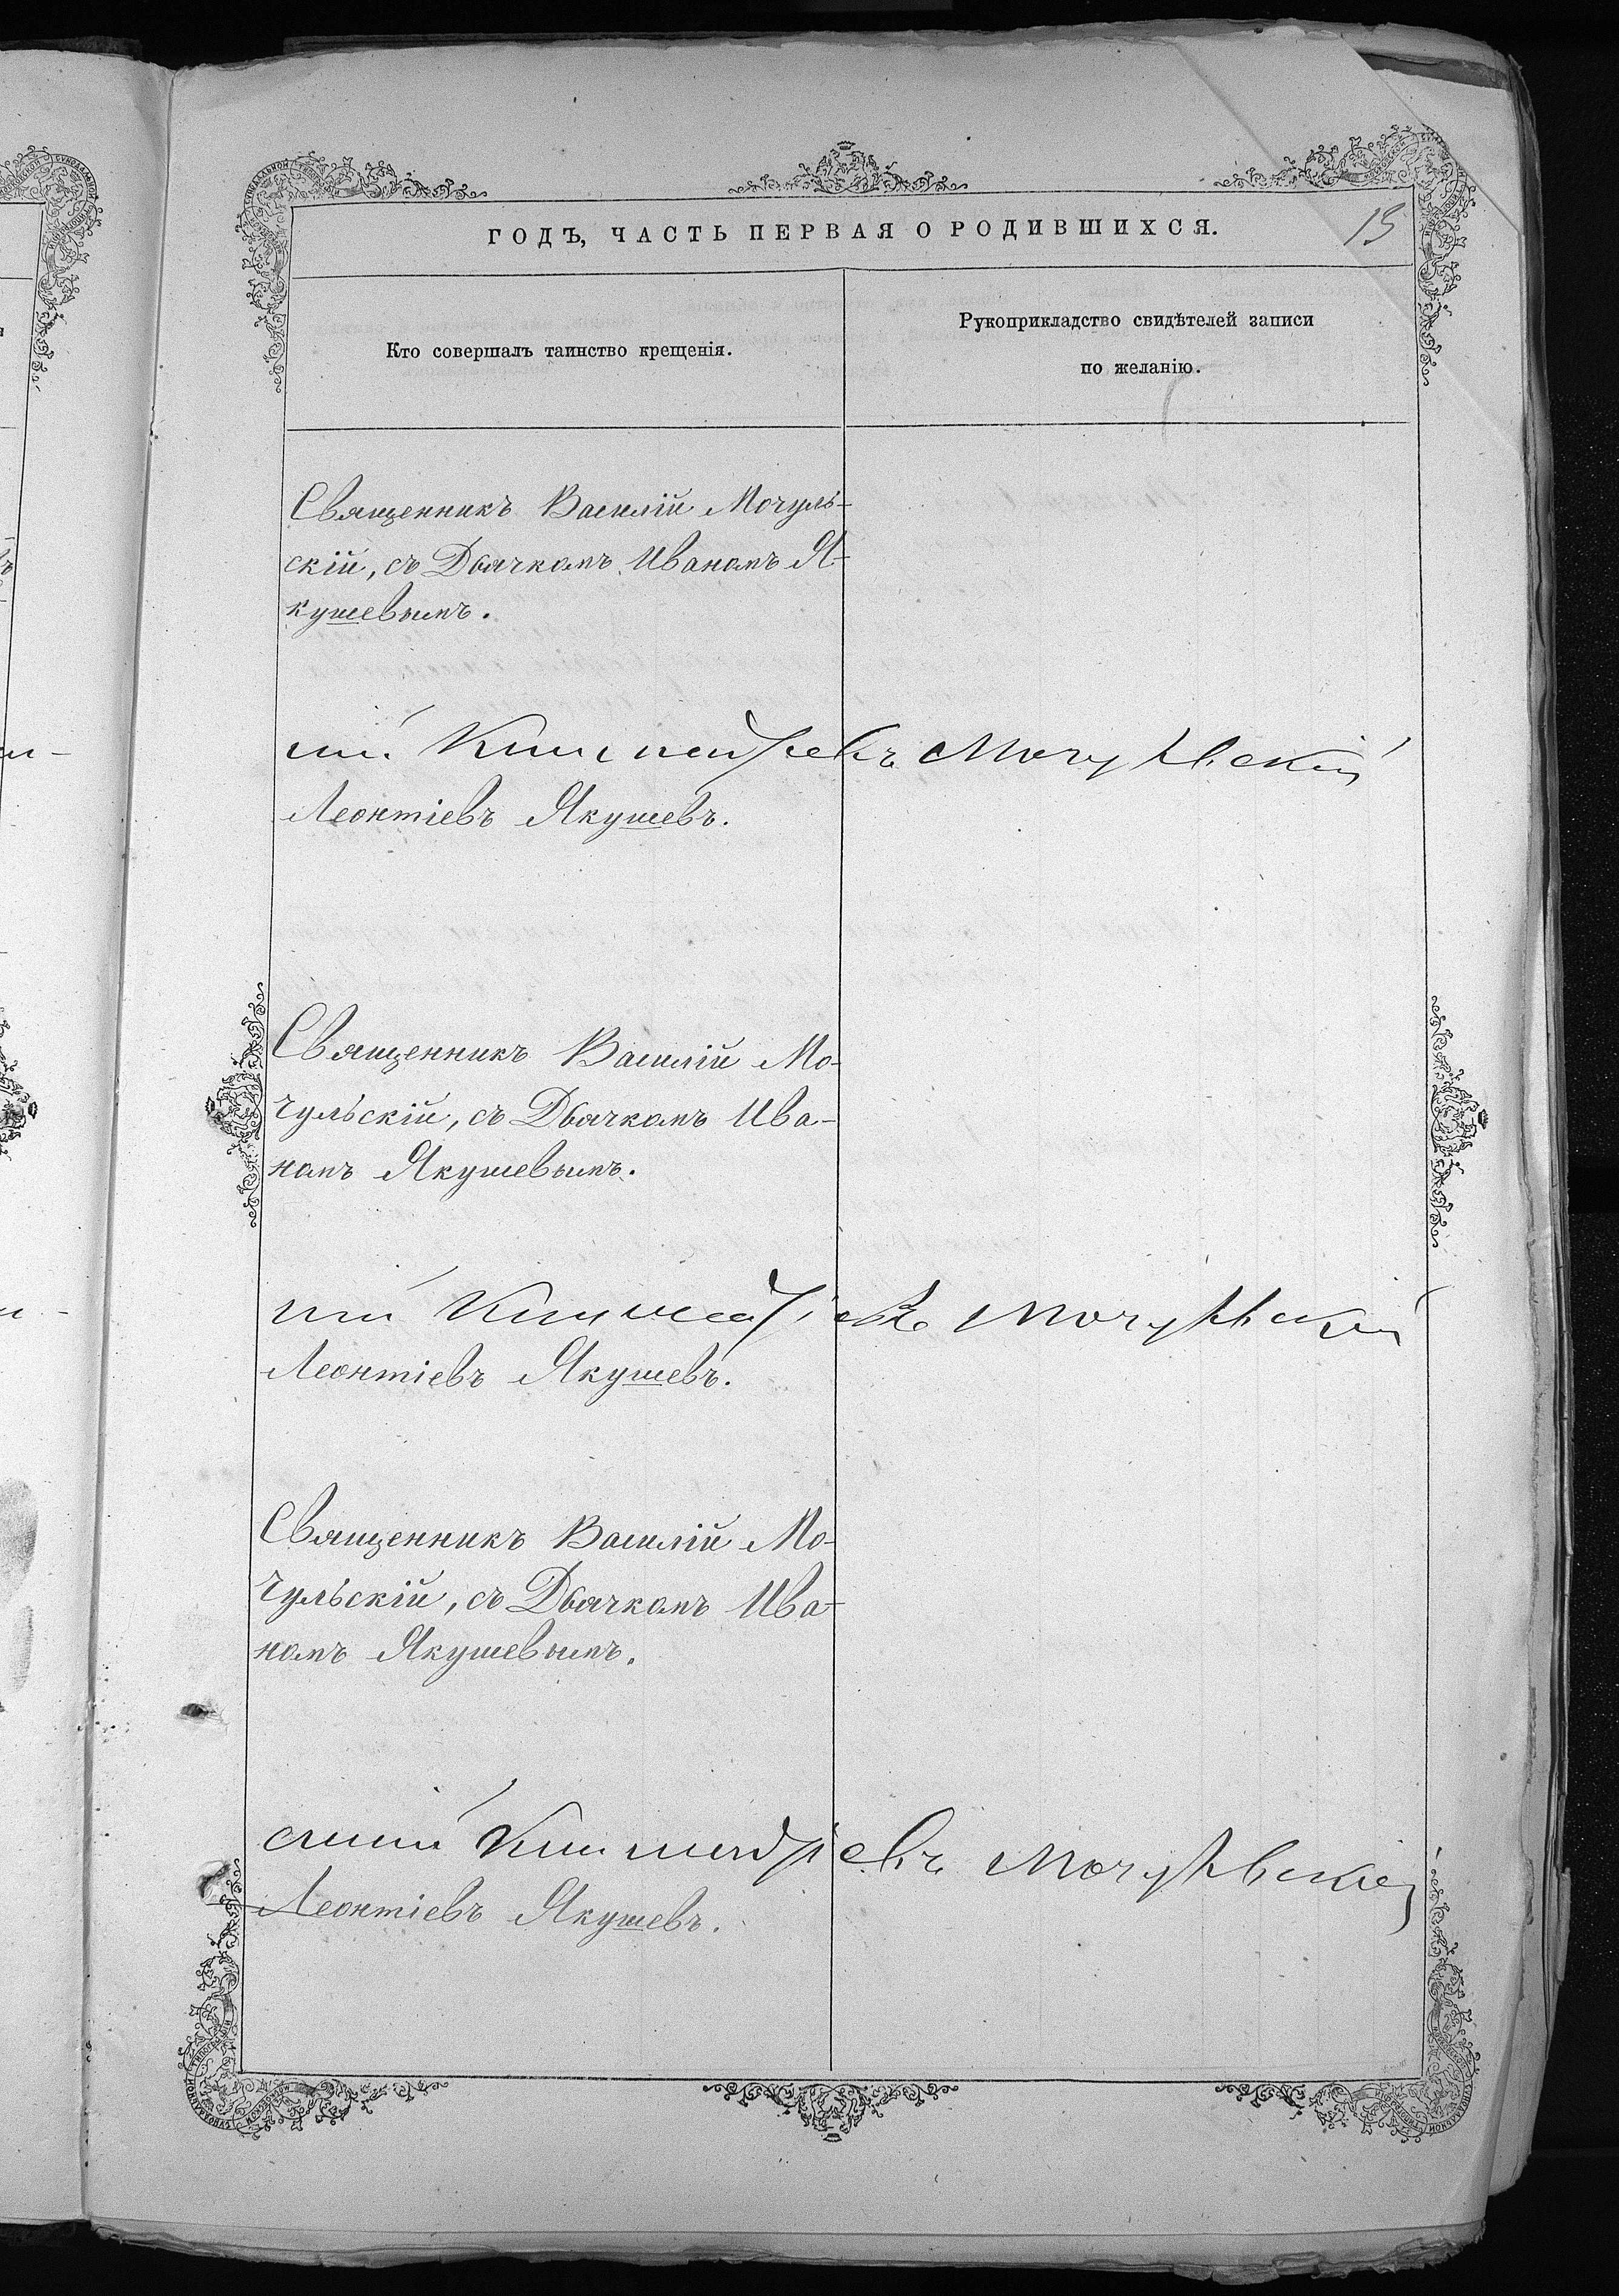 ГОДЪ, ЧАСТЬ ПЕРВАЯ О РОДИВШИХСЯ.
Кто совершалъ таинство крещенія.
Рукоприкладство свидѣтелей записи
по желанію.
Священникъ Василій Мочуль-
скій, съ Дьячкомъ Иваномъ Я-
кушевымъ.
Мочульскій
Леонтіевъ Якушевъ.
Священникъ Василій Мо-
чульскій, съ Дьячкомъ Ива-
номъ Якушевымъ.
Мочульскій
Леонтіевъ Якушевъ.
Священникъ Василій Мо-
чульскій, съ Дьячкомъ Ива-
номъ Якушевымъ.
Мочульскій
Леонтіевъ Якушевъ.